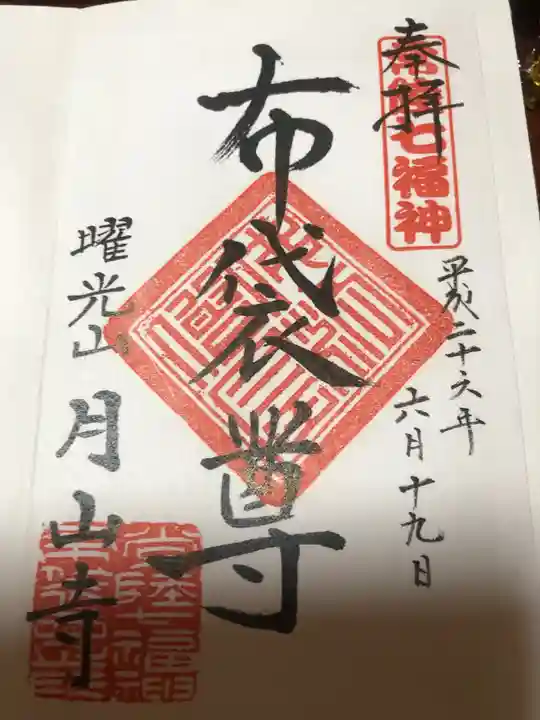 奉拝
常陸七福神
平成二十六年
六月十九日
布袋尊
曜光山
月山寺